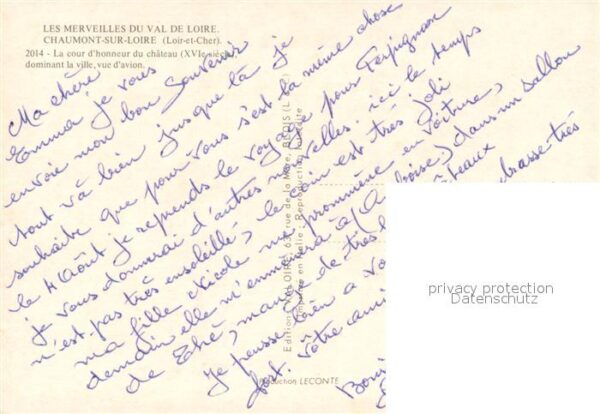 LES MERVEILLES DU VAL DE LOIRE.
CHAUMONT-SUR-LOIRE (Loir-et-Cher).
2014 - La cour d'honneur du château (XVIe siècle)
dominant la ville, vue d'avion.
Ma chère
Emma je vous
envoie mon bon souvenir
tout va bien jusque là je
souhaite que pour vous s'est la même chose
le 4 Août je reprends le voyage pour Perpignan
je vous donnerai d'autres nouvelles. ici le temps
n'est pas très ensoleillé, le coin est très joli
ma fille Nicole me prommène en voiture,
demain elle m'emmènera à (Amboise.) dans un sallon
de Thé, manger de très
je pense bien à vous
fort. Votre
embrasse très
Edition VALOIRE, 63, rue de la Mare, BLOIS (L.-&-C.)
Imprimé en Italie - Reproduction interdite
Production LECONTE
privacy protection
Datenschutz